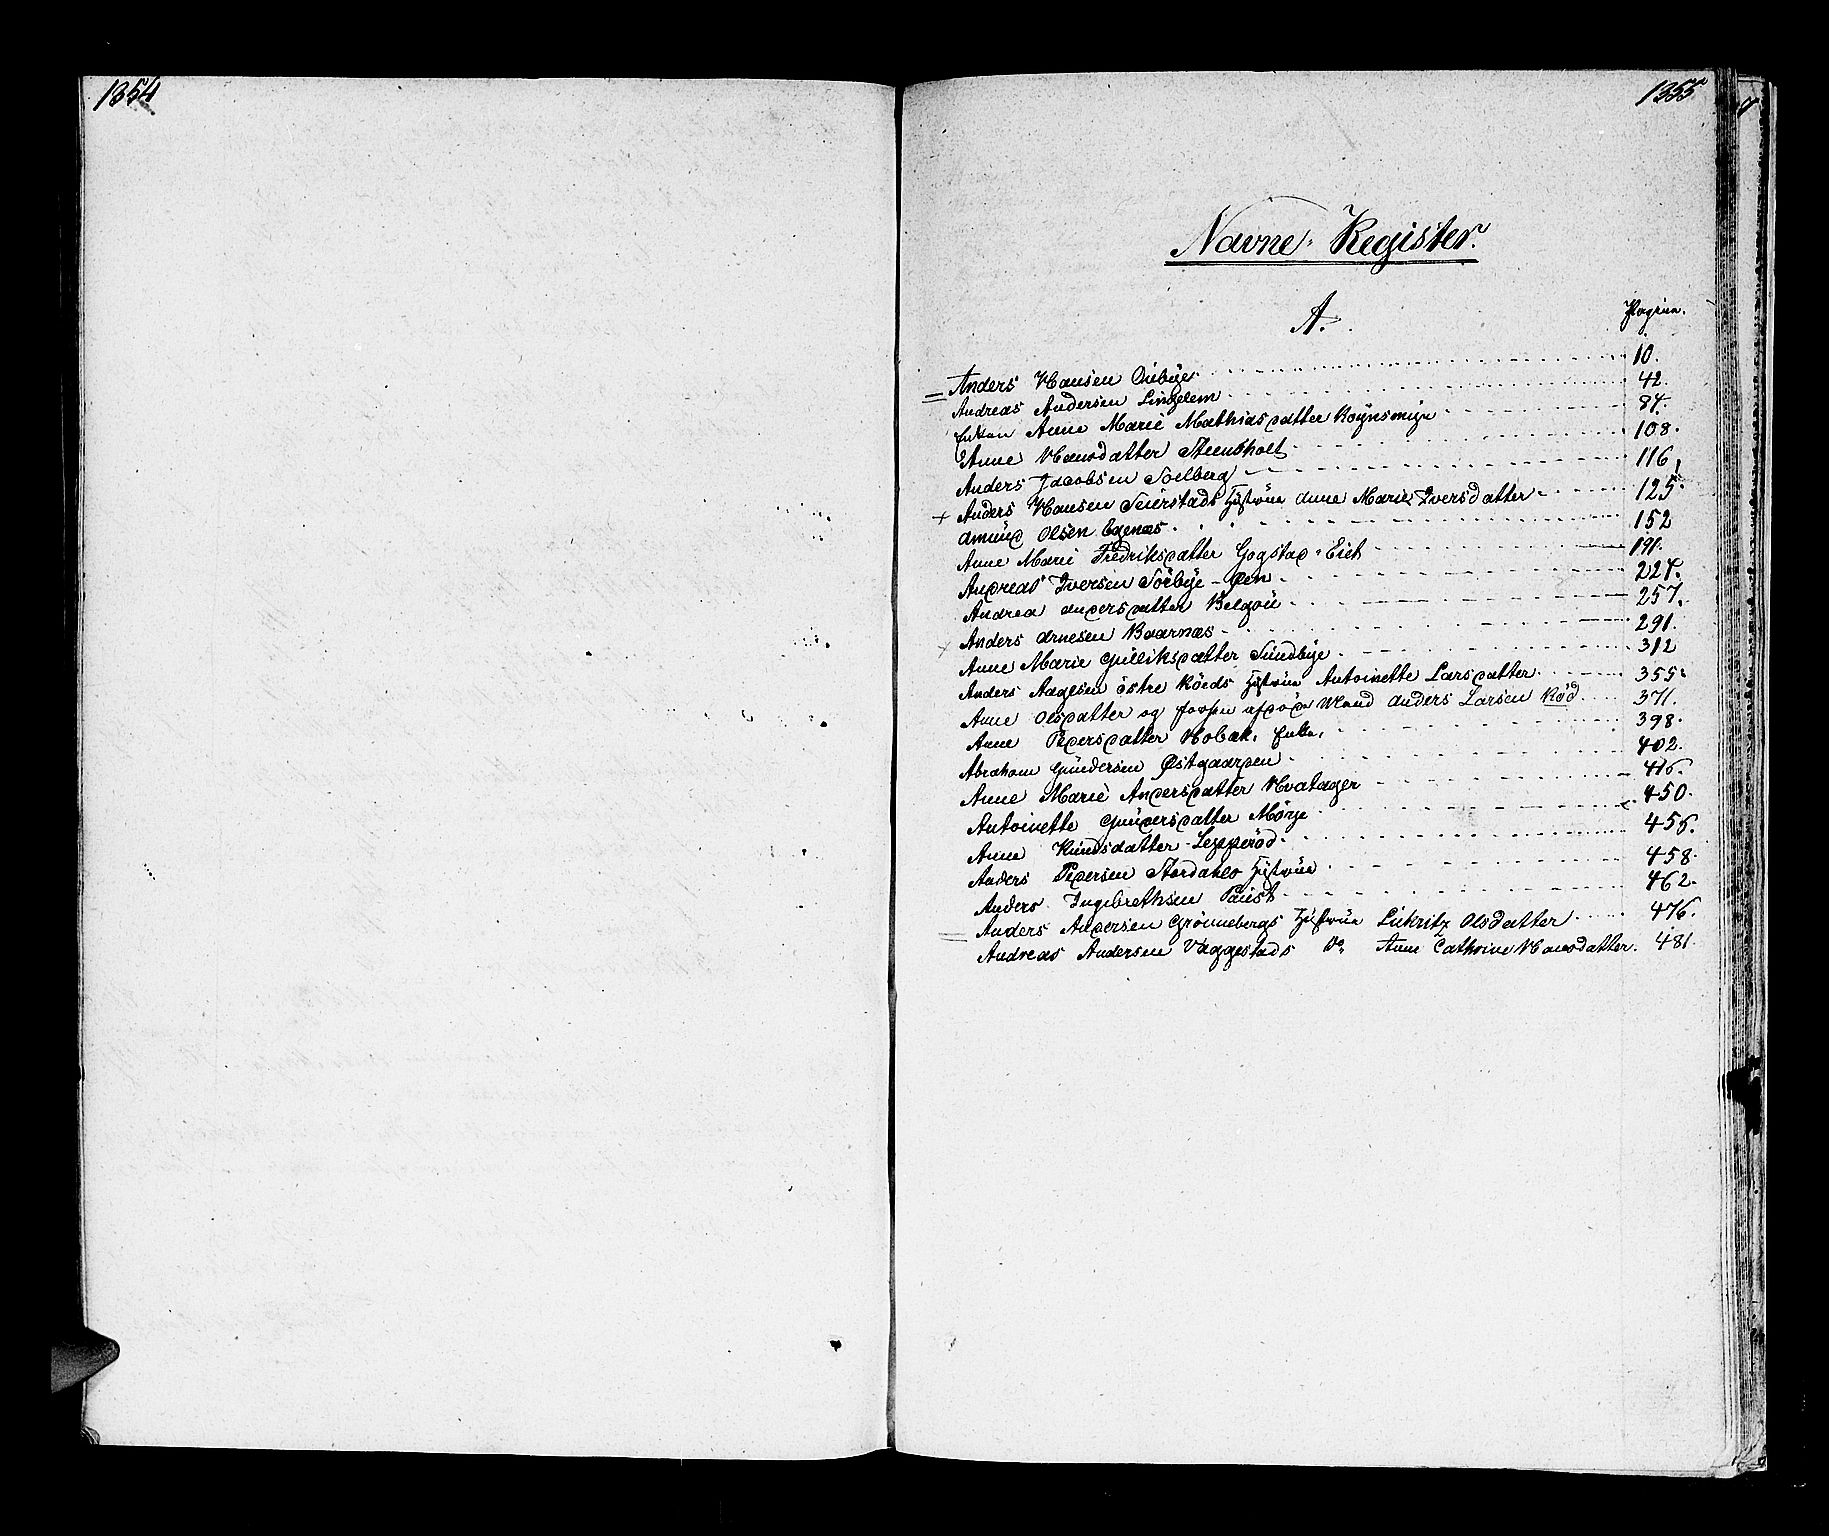 1354
1355
Navne-Register.
A.
Pagina.
Anders Hansen Diebye 10.
Andreas Andersen Lingelem 42.
Enken Anne Marie Mathiasdatter 84.
Anne Hansdatter Steensholt 108.
Anders Jacobsen Solberg 116,
Anders Hansen Seierstads Hustrüe Anne Marie Iversdatter 125.
Amund Olsen Egenæs 152
Anne Marie Fredriksdatter Gogstad-Eiet 191.
Andreas Iversen Sörbye-Øen 227.
Andrea Andersdatter 257.
Anders Arnesen Baarnæs 291.
Anne Marie Gulliksdatter Sundbye 312
Anders Aagesen östre Röeds Hustrüe Antoinette Larsdatter 355.
Anne Olsdatter og Mand Anders Larsen Röd 371.
Anne Pedersdatter Hobæk, Enke, 398.
Abraham Gundersen Østgaarden 402.
Anne Marie Andersdatter Hvatager 416.
Antoinette Gundersdatter Mørje 450.
Anne Knudsdatter Lepperöd 456.
Anders Pedersen Stordahls Hustrüe 458.
Anders Ingebrethsen Paust 462.
Anders Andersen Grönnebergs Hustrüe Olsdatter 476.
Andreas Andersen Vaggestads Do Anne Cathrine Hansdatter. 481.